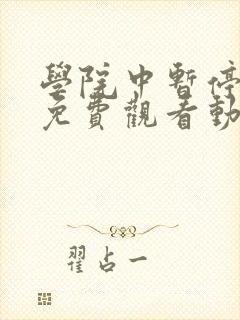 學院中暫停
免費觀看動
翟占一